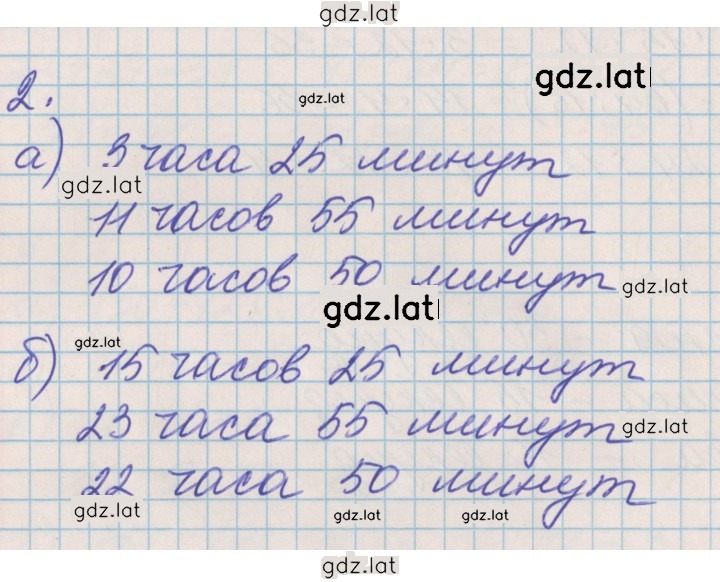 gdz.lat
gdz.lat
2.
gdz.lat
а) 3 часа 25 минут
gdz.lat
11 часов 55 минут
10 часов 50 минут
gdz.lat
gdz.lat
gdz.lat
б) 15 часов 25 минут
23 часа 55 минут
gdz.lat
22 часа 50 минут
gdz.lat
gdz.lat
gdz.lat
gdz.lat